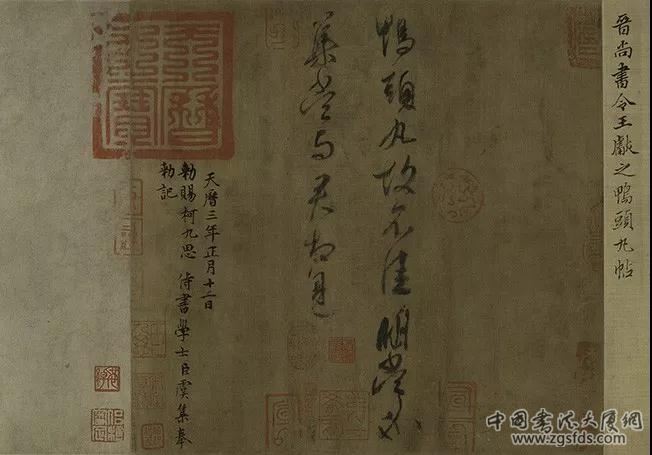 晉尚書令王獻之鴨頭丸帖
鴨頭丸故不佳明當必
集當與君相見
天曆三年正月十二日
勑賜柯九思侍書學士臣虞集奉
勑記
天曆之寶
中国书法大厦網
www.zgsfds.com